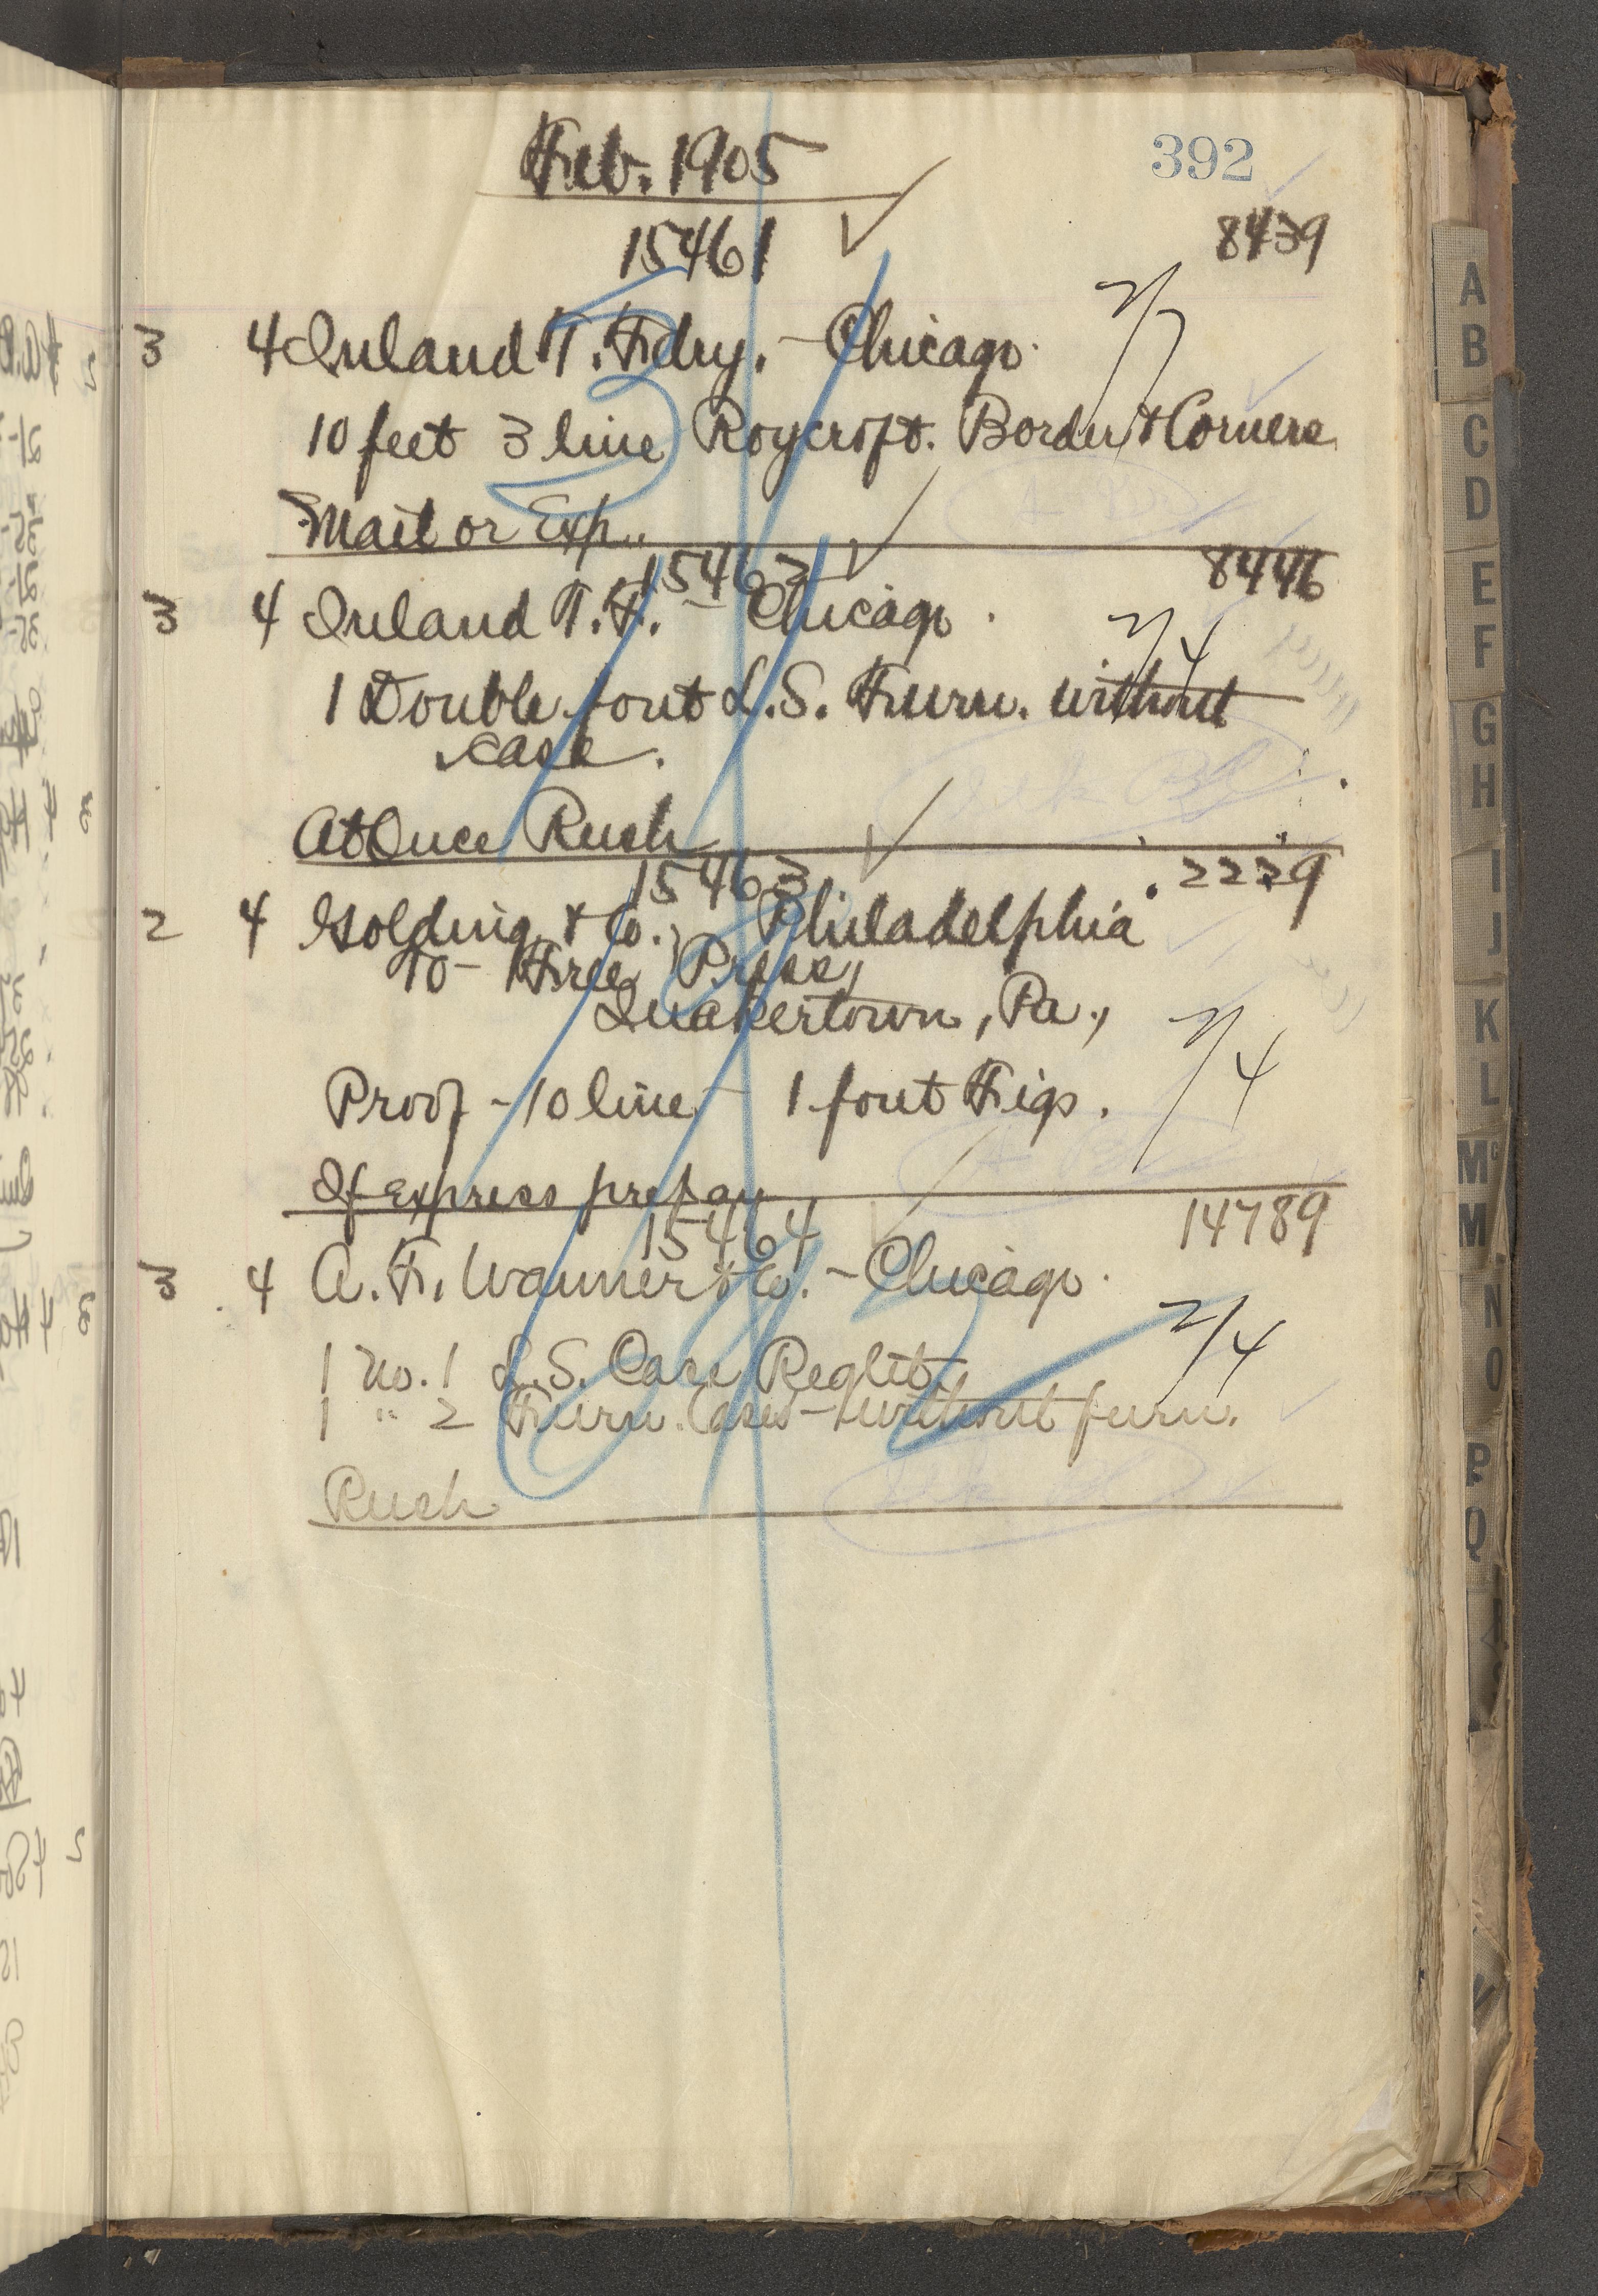 Feb. 1905
392
15461
8439
3 4 Inland T. Fdry. - Chicago.
2/7
10 feet 3 line Roycroft. Border & Corners
Mail or Exp.
15462
8446
3 4 Inland T. F. - Chicago.
2/4
1 Double font L.S. Furn. without
case.
At Once Rush
15463
2229
2 4 Golding & Co., Philadelphia
To - Free Press,
Quakertown, Pa.,
2/4
Proof - 10 line - 1 font Figs.
If express prepay
15464
14789
3 4 A. F. Wanner & Co. - Chicago.
2/4
1 No. 1 L.S. Case Reglet
1 " 2 Furn. Cases - without furn.
Rush
A
B
C
D
E
F
G
H
I
J
K
L
Mc
M
N
O
P
Q